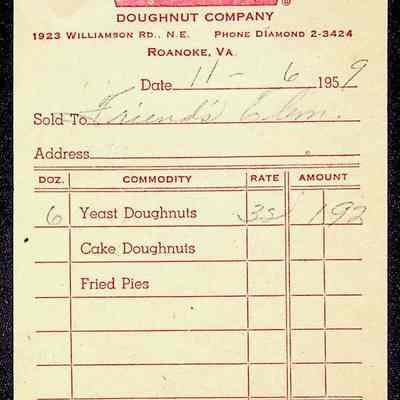 DOUGHNUT COMPANY
1923 WILLIAMSON RD., N.E. PHONE DIAMOND 2-3424
ROANOKE, VA.
Date 11 - 6 1959
Sold To Friend's Elem.
Address
DOZ. COMMODITY RATE AMOUNT
6 Yeast Doughnuts 32 1 92
Cake Doughnuts
Fried Pies